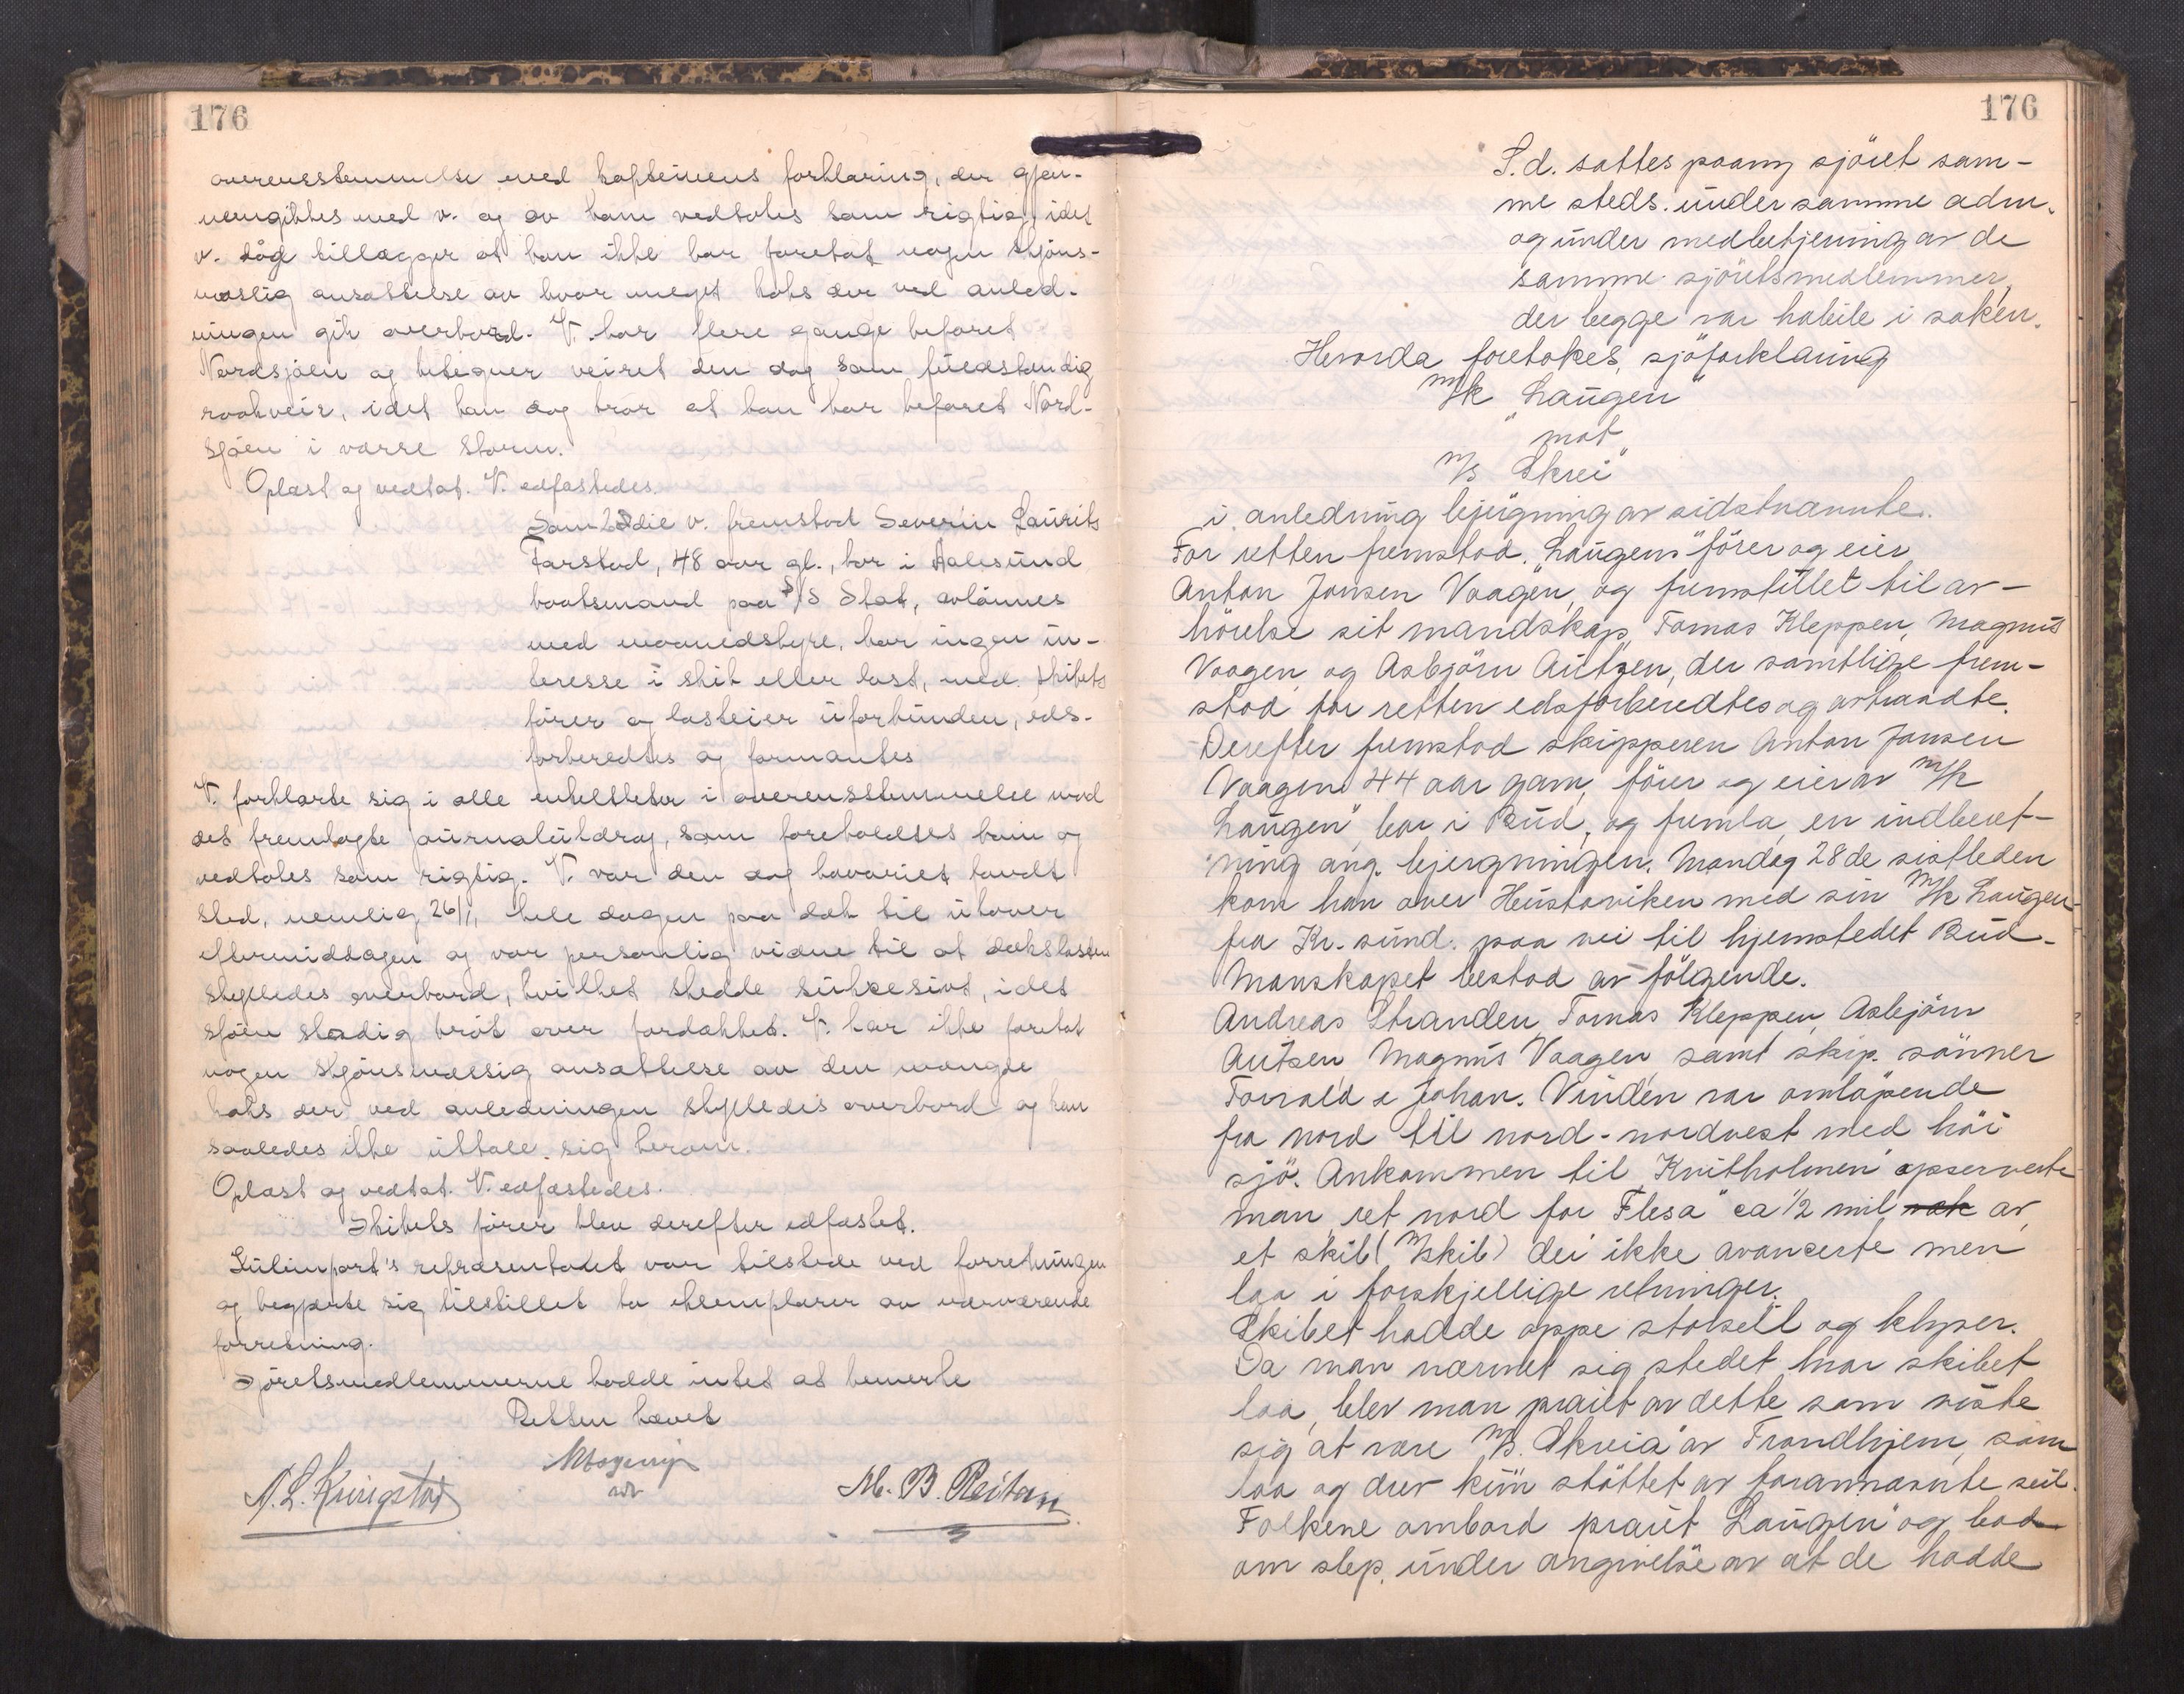 176
overensstemmelse med kapteinens forklaring, der gjen-
nemgikkes med v. og av ham vedtokes som rigtig, idet
v. dog tillægger at han ikke har foretat nogen skjøns-
mæslig ansættelse av hvor meget koks der ved anled-
ningen gik overbord. V. har flere gange befaret
Nordsjøen og betegner veiret den dag som fuldstændig
raakveir, idet han dog tror at han har befaret Nord-
sjøen i værre storm.
Oplæst og vedtat. V. edfæstedes.
Som 2die v. fremstod Severin Laurits
Farstad, 48 aar gl., bor i Aalesund
baatsmand paa S/S Stat, avlønnes
med maanedshyre, har ingen in-
teresse i skib eller last, med skibets
fører og lasteier uforbunden, eds-
forberedtes og formantes
V. forklarte sig i alle enkeltheter i overensstemmelse med
det fremlagte journalutdrag, som foreholdtes ham og
vedtokes som rigtig. V. var den dag havariet fandt
sted, nemlig 26/1, hele dagen paa dæk til utover
eftermiddagen og var personlig vidne til at dækslasten
skylledes overbord, hvilket skedde suksesivt, idet
sjøen stadig brøt over fordækket. V. har ikke foretat
nogen skjønsmæssig ansættelse av den mængde
koks der ved anledningen skylledes overbord og kan
saaledes ikke uttale sig herom.
Oplæst og vedtat. V. edfæstedes.
Skibets fører blev derefter edfæstet.
Kulimport's repræsentant var tilstede ved forretningen
og begjærte sig tilstillet to eksemplarer av nærværende
forretning.
Sjøretsmedlemmerne hadde intet at bemerke
Retten hævet
A. L. Kringstad
M. B. Reitan
176
S.d. sattes paany sjöret sam-
me steds under samme adm.
og under medbetjening av de
samme sjöretsmedlemmer,
der begge var habile i saken.
Hvorda foretokes sjöforklaring
M/k "Laugen"
mot
M/s "Skrei"
i anledning bjergning av sidstnævnte.
For retten fremstod "Laugens" förer og eier
Anton Jonsen Vaagen, og fremstillet til av-
hörelse sit mandskap, Tomas Kleppen, Magnus
Vaagen og Asbjörn Autzen, der samtlige frem-
stod for retten edsforberedtes og avtraadte.
Derefter fremstod skipperen Anton Jonsen
Vaagen 44 aar gam, förer og eier av M/k
Laugen", bor i Bud, og fremla en indberet-
ning ang. bjergningen. Mandag 28de sistleden
kom han over Hustaviken med sin M/k Laugen
fra Kr.sund paa vei til hjemstedet Bud.
Manskapet bestod av fölgende.
Andreas Stranden, Tomas Kleppen, Asbjörn
Autzen, Magnus Vaagen, samt skip. sönner
Torvald & Johan. Vinden var omlöpende
fra nord til nord-nordvest med höi
sjö. Ankommen til "Kvitholmen" opserverte
man ret nord for "Flesa" ca 1/2 mil av
et skib (M/skib) dei ikke avancerte men
laa i forskjellige retninger.
Skibet hadde oppe stolseil og klyver.
Da man nærmet sig stedet hvor skibet
laa, blev man praiet av dette som viste
sig at være M/s. "Skreia" av Trondhjem, som
laa og drev kun stöttet av forannævnte seil.
Folkene ombord praiet "Laugen" og bad
om slep, under angivelse av at de hadde